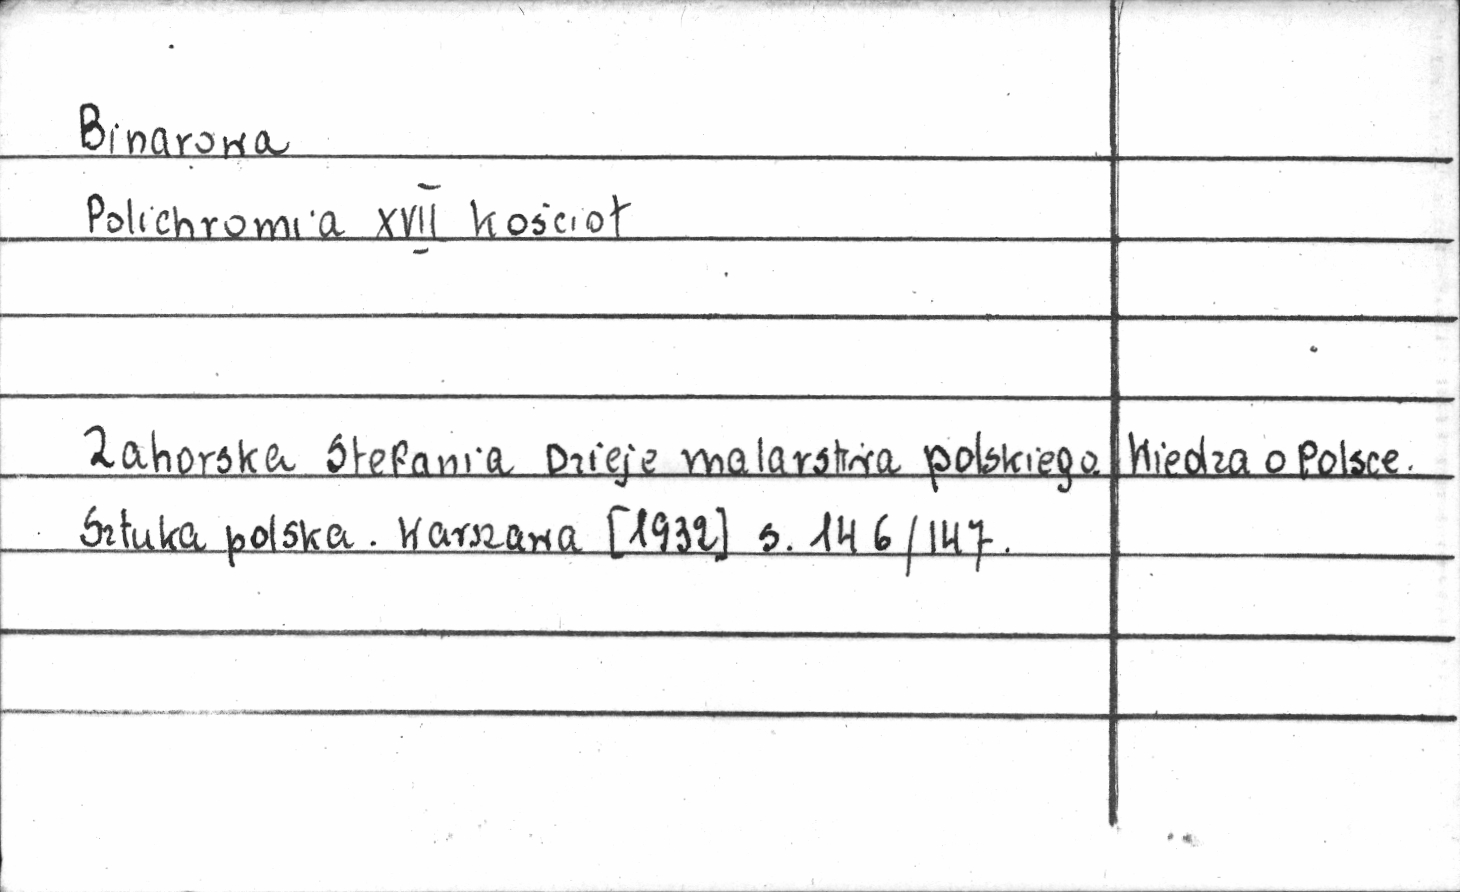 Binarowa
Polichromia XVII kościół
Zahorska Stefania Dzieje malarstwa polskiego Wiedza o Polsce.
Sztuka polska. Warszawa [1932] s. 146/147.